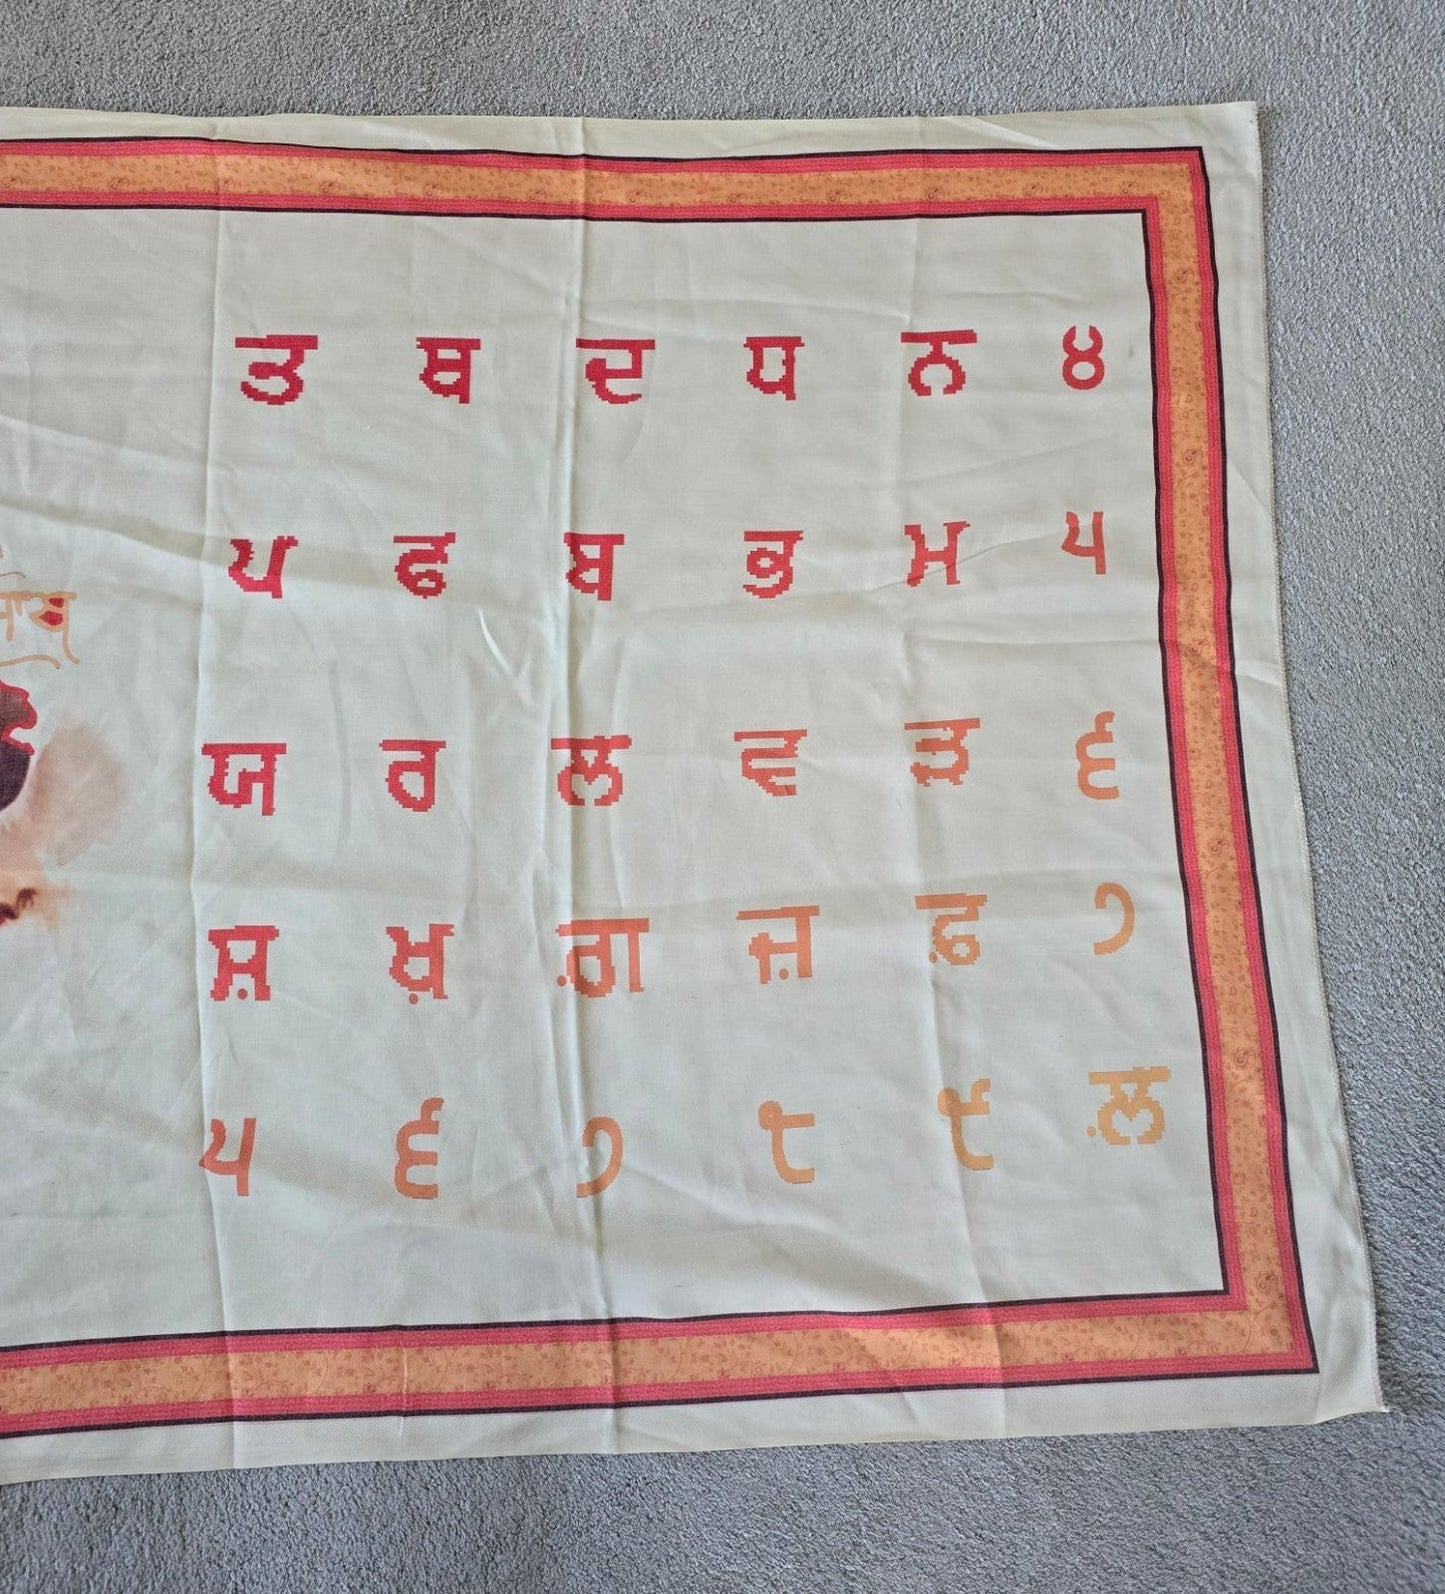 ਤ ਥ ਦ ਧ ਨ ੪
ਪ ਫ ਬ ਭ ਮ ੫
ਯ ਰ ਲ ਵ ੜ ੬
ਸ਼ ਖ਼ ਗ਼ ਜ਼ ਫ਼ ੭
੫ ੬ ੭ ੮ ੯ ਲ਼